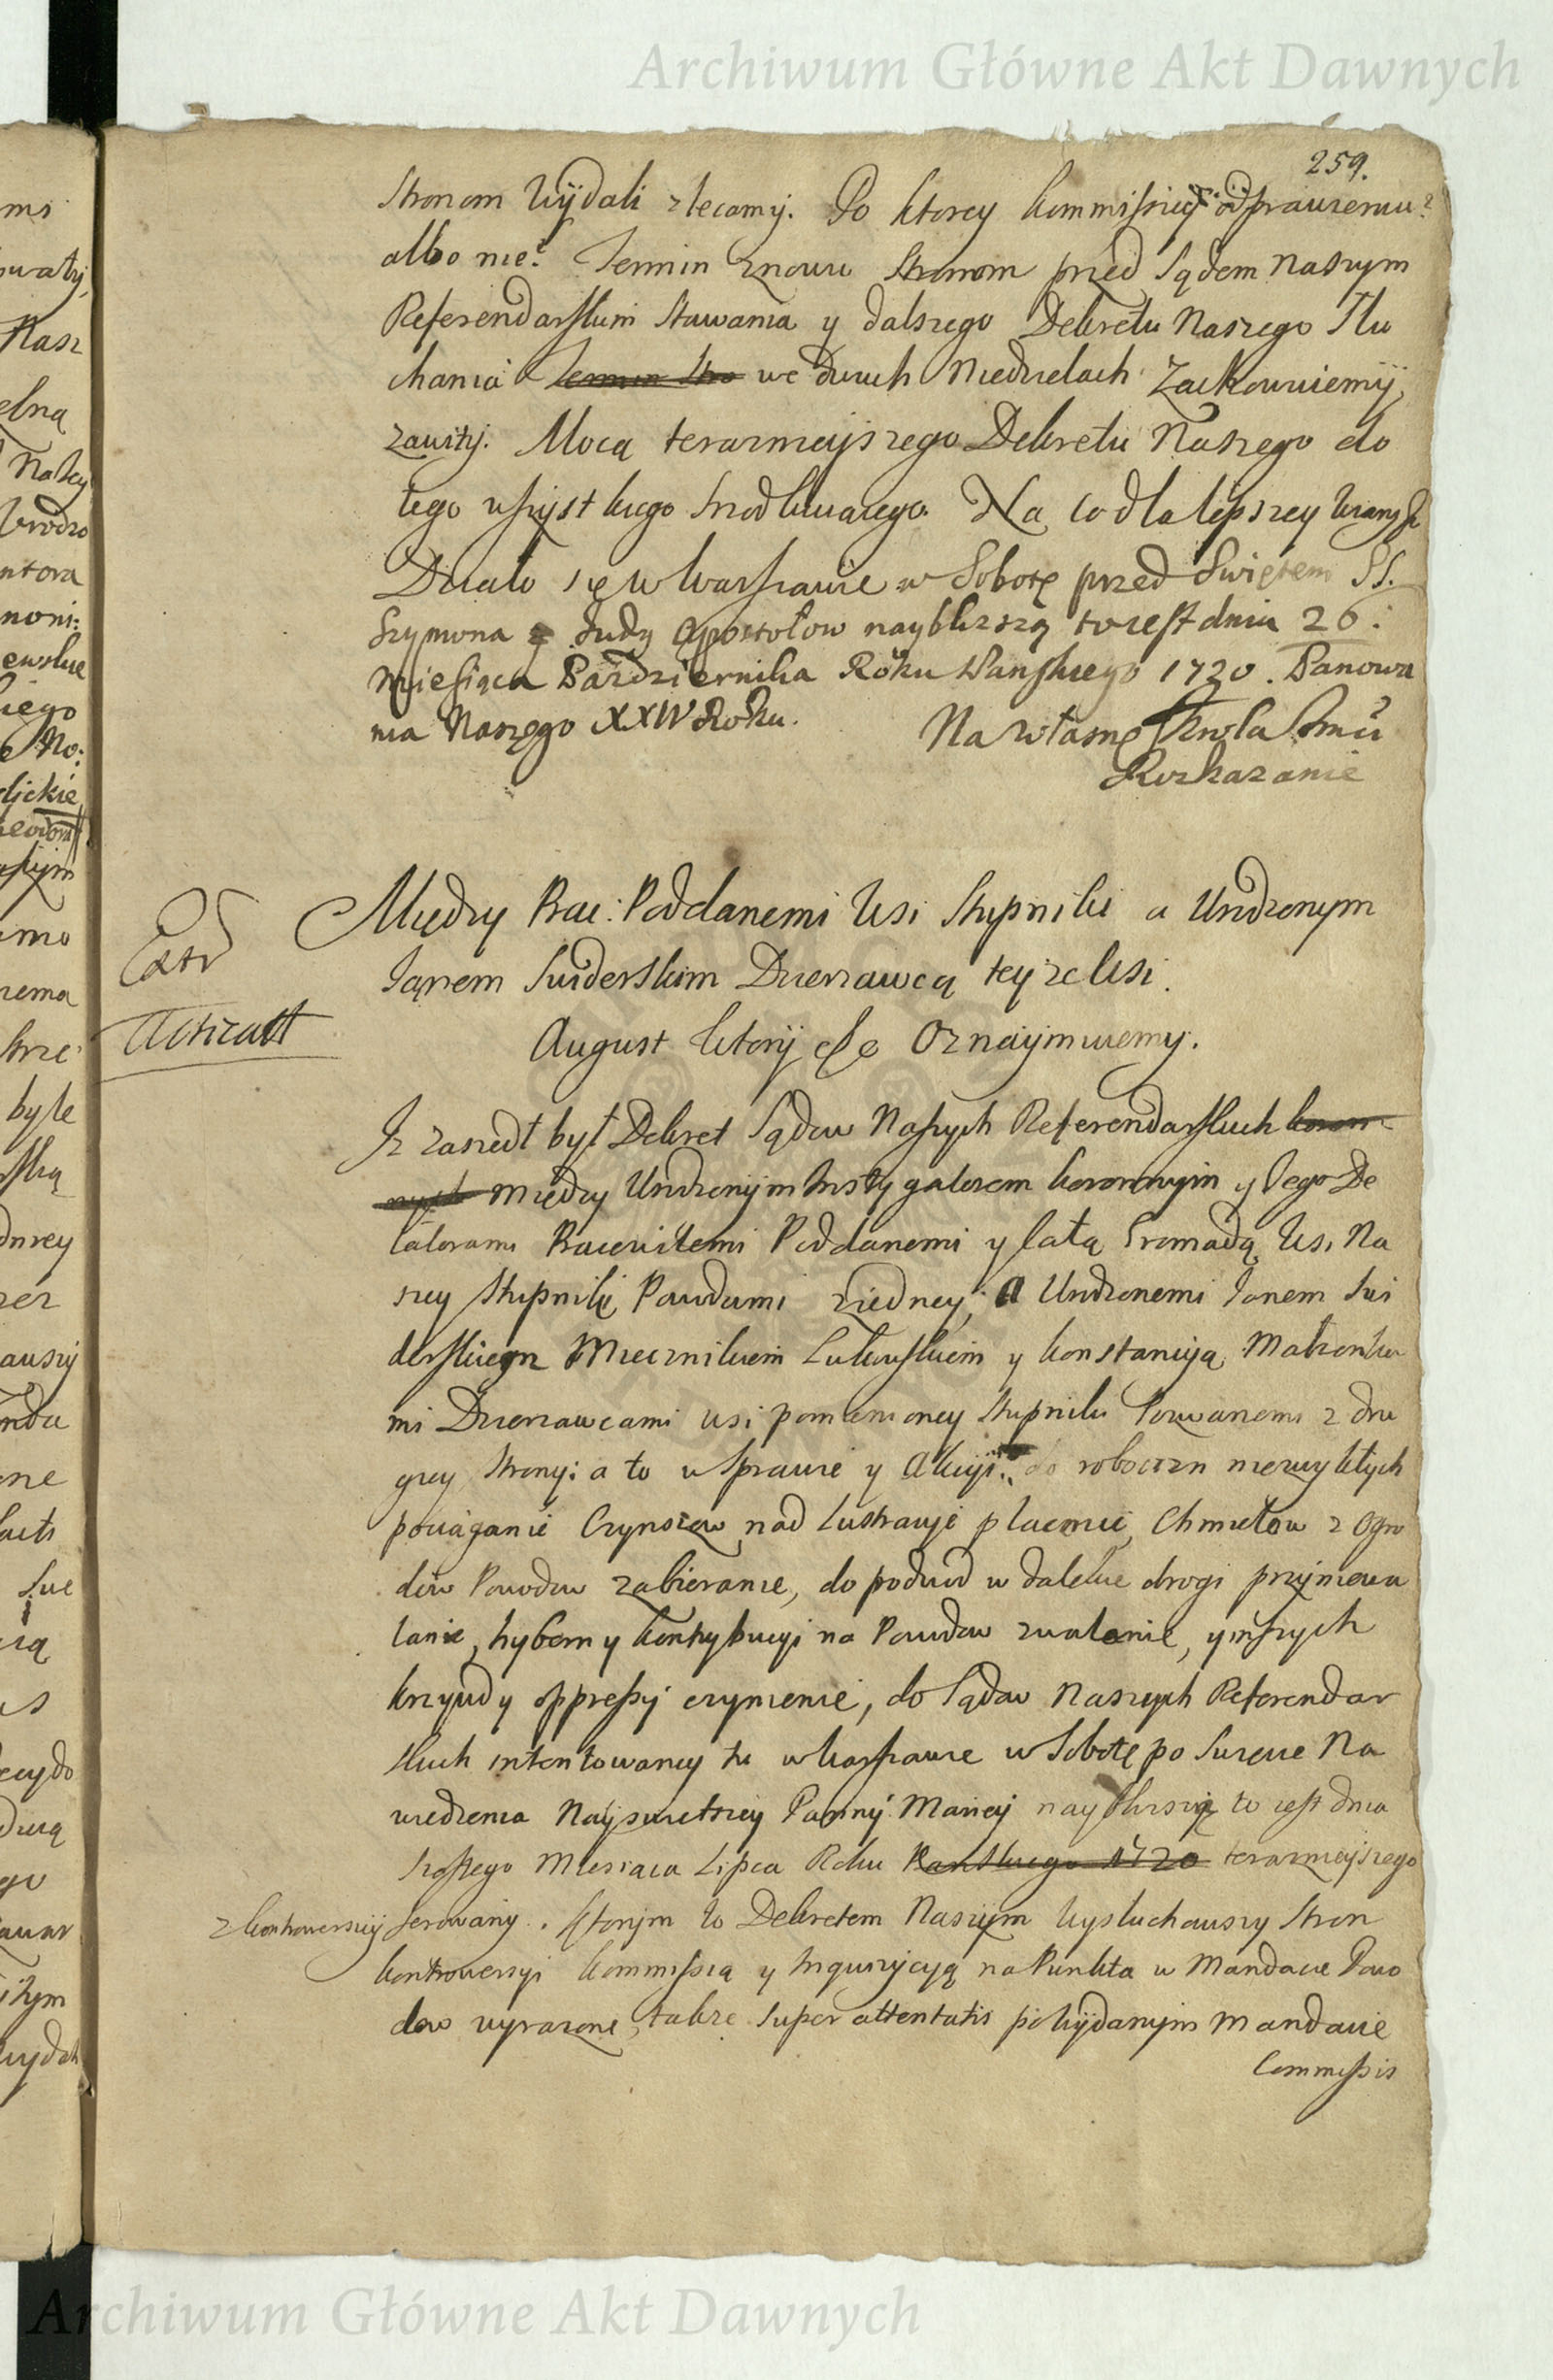 Archiwum Główne Akt Dawnych
259.
Stronom wÿdali zlecamy. Po ktorey kommissiey odprawieniu?
albo nie? Termin znowu Stronom przed Sądem naszym
Referendarskim stawania y dalszego Dekretu Naszego Słu
chania Termin Stro we dwuch Niedzielach Zachowuiemÿ,
zawity. Mocą teraznieyszego Dekretu Naszego do
tego wszystkiego srzodkuiącego. Na co dla lepszey
Działo się w Warszawie w Sobotę przed Swiętem SS.
Szymona Judy Apostołow naybliższą to iest dnia 26.
Miesiąca Pazdziernika Roku Panskiego 1720. Panowa
nia Naszego XXIV Roku.
Na własne Krola Jmci
Rozkazanie
Między Prac: Poddanemi Wsi Stupniki a Urodzonym
Janem Swiderskim Dzierzawcą teyze Wsi.
Extr
August wtory etc Oznaymuiemy.
Iz zaszedł był Dekret Sądow Naszych Referendarskich koron
nych między Urodzonym Instygatorem koronnym y Jego De
latorami Pracowitemi Poddanemi y całą Gromadą Wsi Na
szey Stupniki Powodami z iedney, a Urodzonemi Janem Swi
derskiem Miecznikiem Lukowskiem y konstancyą Małzonka
mi Dzierzawcami wsi pomienioney Stupniki Pozwanemi z dru
giey Strony: a to w Sprawie y Akcyi do roboczn niezwykłych
pociąganie Czynszow nad Lustracye płacenie, Chmielow z Ogro
dow Powodow zabieranie, do podwod w dalekie drogi przyniewa
lanie, hyberny kontrybucyi na Powodow zwalenie, y inszych
krzywd y oppressyi czynienie, do Sądow Naszych Referendar
skich intentowaney tu w Warszawie w Sobotę po Swięcie Na
wiedzenia Nayswietszey Panny Mariey naybliższą to iest dnia
szostego Miesiaca Lipca Roku Panskiego 1720 teraznieyszego
z kontrowersyi ferowany. Ktorym to Dekretem Naszym Wysłuchawszy Stron
kontrowersyi kommissią y Inquizycyą na Punkta w Mandacie Powo
dow wyrazone, takze super attentatis po wydanym Mandacie
Commissis
Archiwum Główne Akt Dawnych